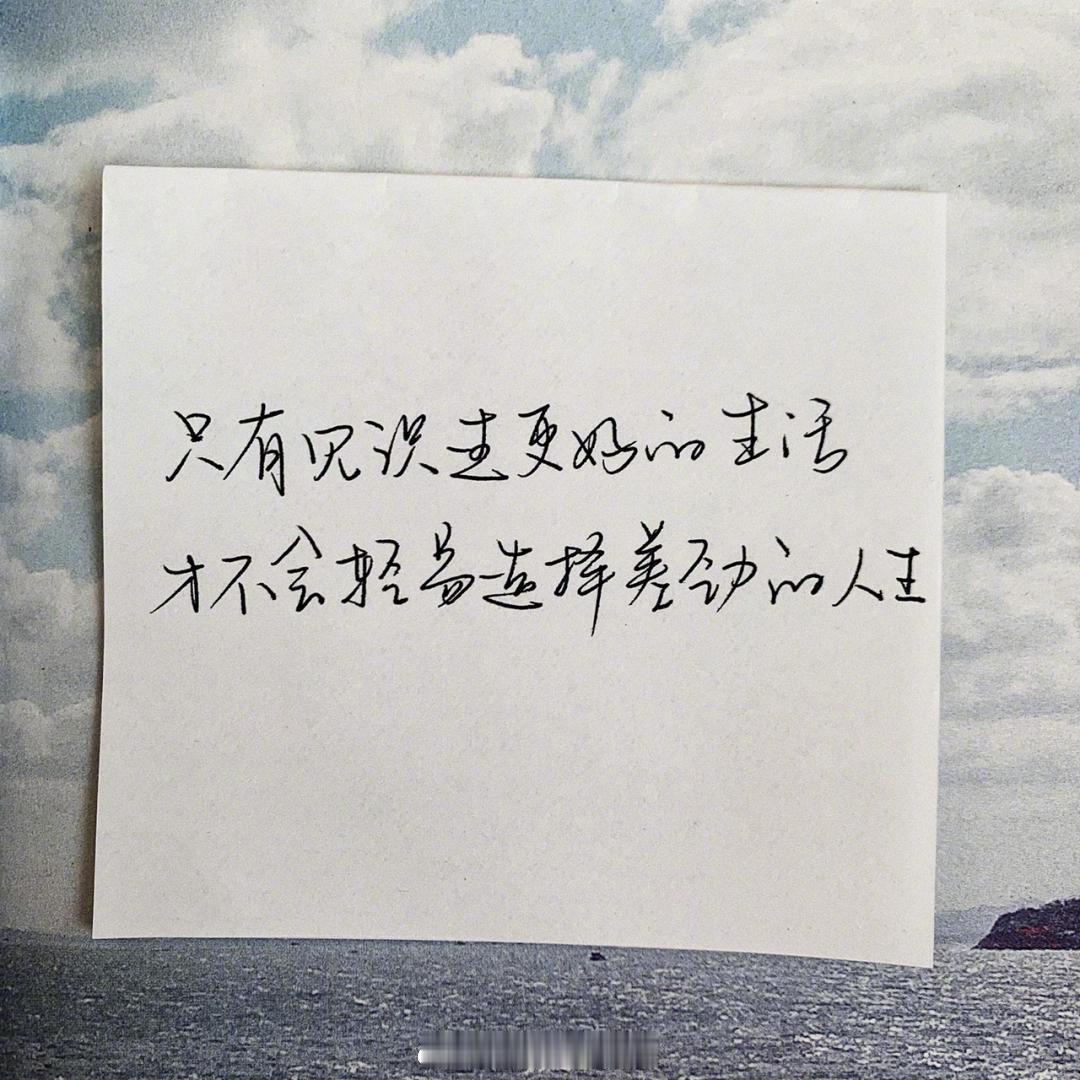 只有见识过更好的生活
才不会轻易选择差劲的人生